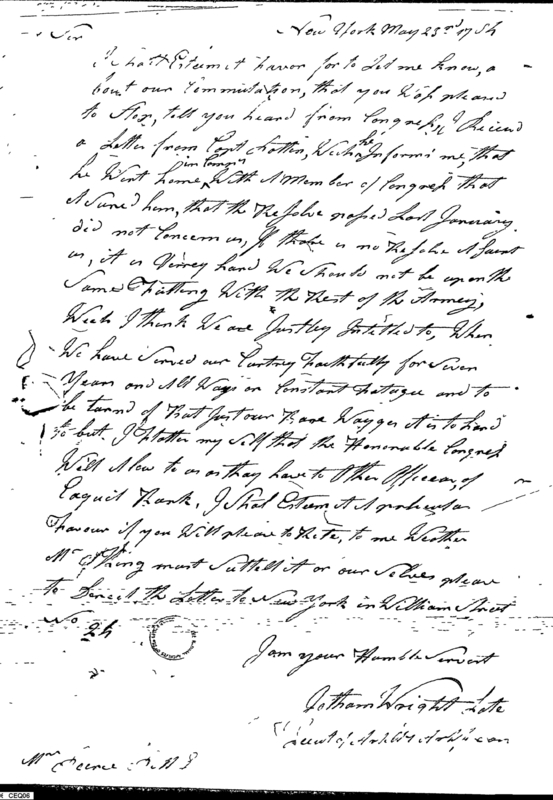 New York May 23rd 1784
Sir
I shall Esteem it favor for to Let me know, a
bout our Commutation, that you Was pleased
to Stop, till you heard from Congress, I Recievd
a Letter from Capt Chotten, Wich he Informs me, that
he Went home in Compy With A Member of Congress that
Asured him, that the Resolve passed Last January
did not Concern us, If there is no Resolve Afecrt
us, it is Verrey hard We Should not be upon the
Same Futting With the Rest of the Armey,
Wich I think We are Justley Intitled to, When
We have Served our Cuntrey Faithfully for Seven
Years and All Ways on Constant Fatague and to
be turnd of that Just our Bare Wayges it is to hard
to but I Flatter my Self that the Honorable Congress
Will Alow to us as they have to Other Officers, of
Eaquil Rank, I Shal Esteem it A particular
Favour if you Will please to Rite, to me Weather
Mr Thing must Suttell it or our Selves please
to Derect the Letter to New York in William Street
No 24
I am your Humble Servent
Jotham Wright Late
Lieut of
Mr Peirce
CEQ06